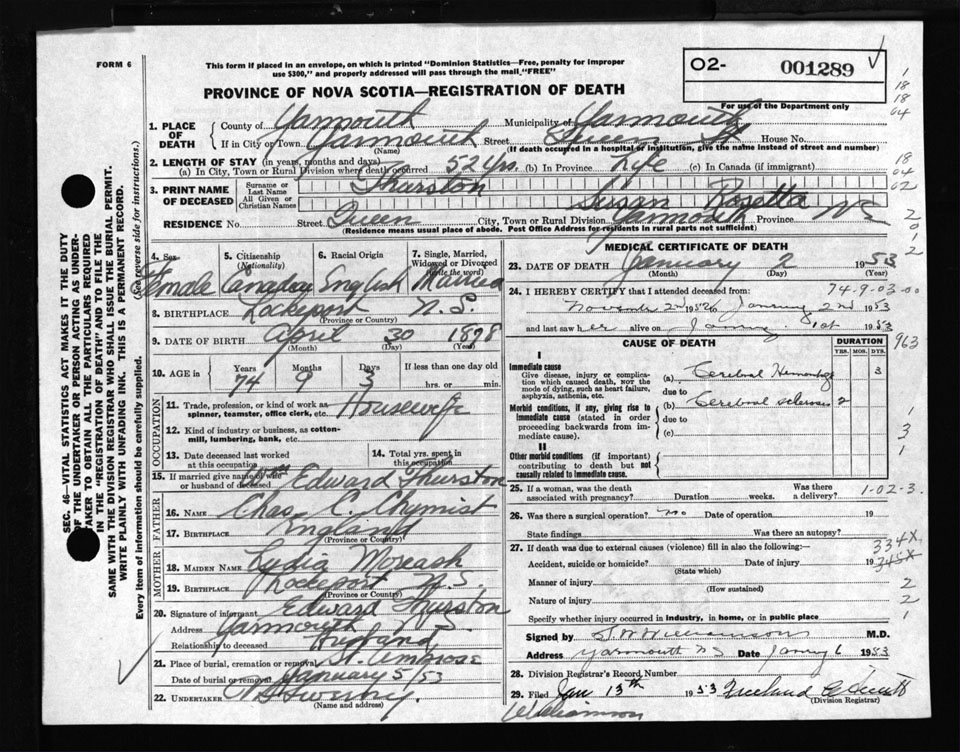 FORM 6
This form if placed in an envelope, on which is printed "Dominion Statistics—Free, penalty for improper
use $300," and properly addressed will pass through the mail "FREE"
PROVINCE OF NOVA SCOTIA—REGISTRATION OF DEATH
O2- 001289
For use of the Department only
1. PLACE OF DEATH
County of Yarmouth Municipality of Yarmouth
If in City or Town Yarmouth Street Queen St House No.
(Name) (If death occurred in a hospital or institution, give the name instead of street and number)
2. LENGTH OF STAY (in years, months and days)
(a) In City, Town or Rural Division where death occurred 52 yrs. (b) In Province Life (c) In Canada (if immigrant)
3. PRINT NAME OF DECEASED
Surname or Last Name Thurston
All Given or Christian Names Susan Rosetta
RESIDENCE No. Street Queen City, Town or Rural Division Yarmouth Province NS
(Residence means usual place of abode. Post Office Address for residents in rural parts not sufficient)
4. Sex Female
5. Citizenship (Nationality) Canadian
6. Racial Origin English
7. Single, Married, Widowed or Divorced (Write the word) Married
8. BIRTHPLACE Lockeport N.S.
(Province or Country)
9. DATE OF BIRTH April 30 1878
(Month) (Day) (Year)
10. AGE in Years 74 Months 9 Days 3 If less than one day old
hrs. or min.
OCCUPATION
11. Trade, profession, or kind of work as
spinner, teamster, office clerk, etc. Housewife
12. Kind of industry or business, as cotton-
mill, lumbering, bank, etc.
13. Date deceased last worked
at this occupation
14. Total yrs. spent in
this occupation
15. If married give name of wife
or husband of deceased Wm Edward Thurston
FATHER
16. NAME Chas. C. Chymist
17. BIRTHPLACE England
(Province or Country)
MOTHER
18. MAIDEN NAME Lydia
19. BIRTHPLACE Lockeport N.S.
(Province or Country)
20. Signature of informant Edward Thurston
Address Yarmouth N.S.
Relationship to deceased Husband
21. Place of burial, cremation or removal St. Ambrose
Date of burial or removal January 5/53
22. UNDERTAKER Sweeny.
(Name and address)
MEDICAL CERTIFICATE OF DEATH
23. DATE OF DEATH January 2 1953
(Month) (Day) (Year)
24. I HEREBY CERTIFY that I attended deceased from: 74-9-03-00
November 2nd 1952 to January 2nd 1953
and last saw her alive on January 1st 1953
CAUSE OF DEATH
DURATION
YRS. MOS. DYS.
963
I
Immediate cause
Give disease, injury or complica-
tion which caused death, NOT the
mode of dying, such as heart failure,
asphyxia, asthenia, etc.
(a) Cerebral Hemorrhage 3
due to
Morbid conditions, if any, giving rise to
immediate cause (stated in order
proceeding backwards from im-
mediate cause).
(b) Cerebral sclerosis 2
due to
(c)
II
Other morbid conditions (if important)
contributing to death but not
causally related to immediate cause.
25. If a woman, was the death
associated with pregnancy? Duration weeks. Was there
a delivery? 1-02-3.
26. Was there a surgical operation? no Date of operation 19
State findings Was there an autopsy?
27. If death was due to external causes (violence) fill in also the following:— 334X
Accident, suicide or homicide? Date of injury 19 345X
(State which)
Manner of injury 2
(How sustained)
Nature of injury 2
Specify whether injury occurred in industry, in home, or in public place 1
Signed by Williamson M.D.
Address Yarmouth NS Date January 6 1953
28. Division Registrar's Record Number
29. Filed Jan 13th 1953 Freeland
(Division Registrar)
Williamson
1
18
18
04
18
04
02
2
0
1
2
3
1
SEC. 46—VITAL STATISTICS ACT MAKES IT THE DUTY
OF THE UNDERTAKER OR PERSON ACTING AS UNDER-
TAKER TO OBTAIN ALL THE PARTICULARS REQUIRED
IN THE "REGISTRATION OF DEATH" AND TO FILE THE
SAME WITH THE DIVISION REGISTRAR WHO SHALL ISSUE THE BURIAL PERMIT.
WRITE PLAINLY WITH UNFADING INK. THIS IS A PERMANENT RECORD.
Every item of information should be carefully supplied. (See reverse side for instructions.)